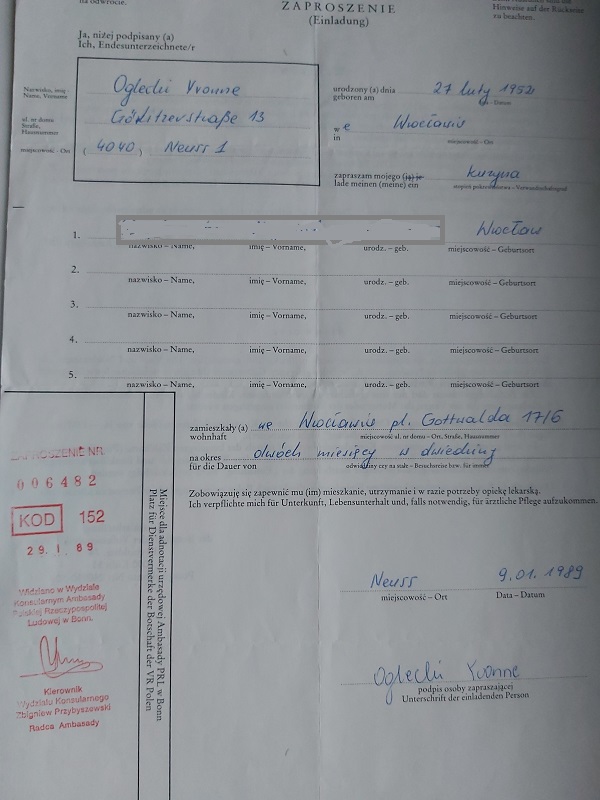 na odwrocie.
ZAPROSZENIE
(Einladung)
Hinweise auf der Rückseite
zu beachten.
Ja, niżej podpisany (a)
Ich, Endesunterzeichnete/r
Nazwisko, imię -
Name, Vorname
Oglecki Yvonne
ul. nr domu
Straße,
Hausnummer
Görlitzerstraße 13
miejscowość - Ort
( 4040 ) Neuss 1
urodzony (a) dnia 27 luty 1952
geboren am - Datum
w e Wrocławiu
in miejscowość - Ort
zapraszam mojego (ją) je kuzyna
lade meinen (meine) ein stopień pokrewieństwa - Verwandtschaftsgrad
1. Wrocław
nazwisko – Name, imię – Vorname, urodz. – geb. miejscowość – Geburtsort
2.
nazwisko – Name, imię – Vorname, urodz. – geb. miejscowość – Geburtsort
3.
nazwisko – Name, imię – Vorname, urodz. – geb. miejscowość – Geburtsort
4.
nazwisko – Name, imię – Vorname, urodz. – geb. miejscowość – Geburtsort
5.
nazwisko – Name, imię – Vorname, urodz. – geb. miejscowość – Geburtsort
zamieszkały (a) we Wrocławiu pl. Gottwalda 17/6
wohnhaft miejscowość ul. nr domu – Ort, Straße, Hausnummer
na okres dwóch miesięcy w
für die Dauer von odwiedziny czy na stałe – Besuchsreise bzw. für immer
Zobowiązuję się zapewnić mu (im) mieszkanie, utrzymanie i w razie potrzeby opiekę lekarską.
Ich verpflichte mich für Unterkunft, Lebensunterhalt und, falls notwendig, für ärztliche Pflege aufzukommen.
Neuss 9.01.1989
miejscowość – Ort Data – Datum
Oglecki Yvonne
podpis osoby zapraszającej
Unterschrift der einladenden Person
Miejsce dla adnotacji urzędowej Ambasady PRL w Bonn
Platz für Dienstvermerke der Botschaft der VR Polen
ZAPROSZENIE NR.
006482
KOD 152
29. I. 89
Widziano w Wydziale
Konsularnym Ambasady
Polskiej Rzeczypospolitej
Ludowej w Bonn.
Kierownik
Wydziału Konsularnego
Zbigniew Przybyszewski
Radca Ambasady